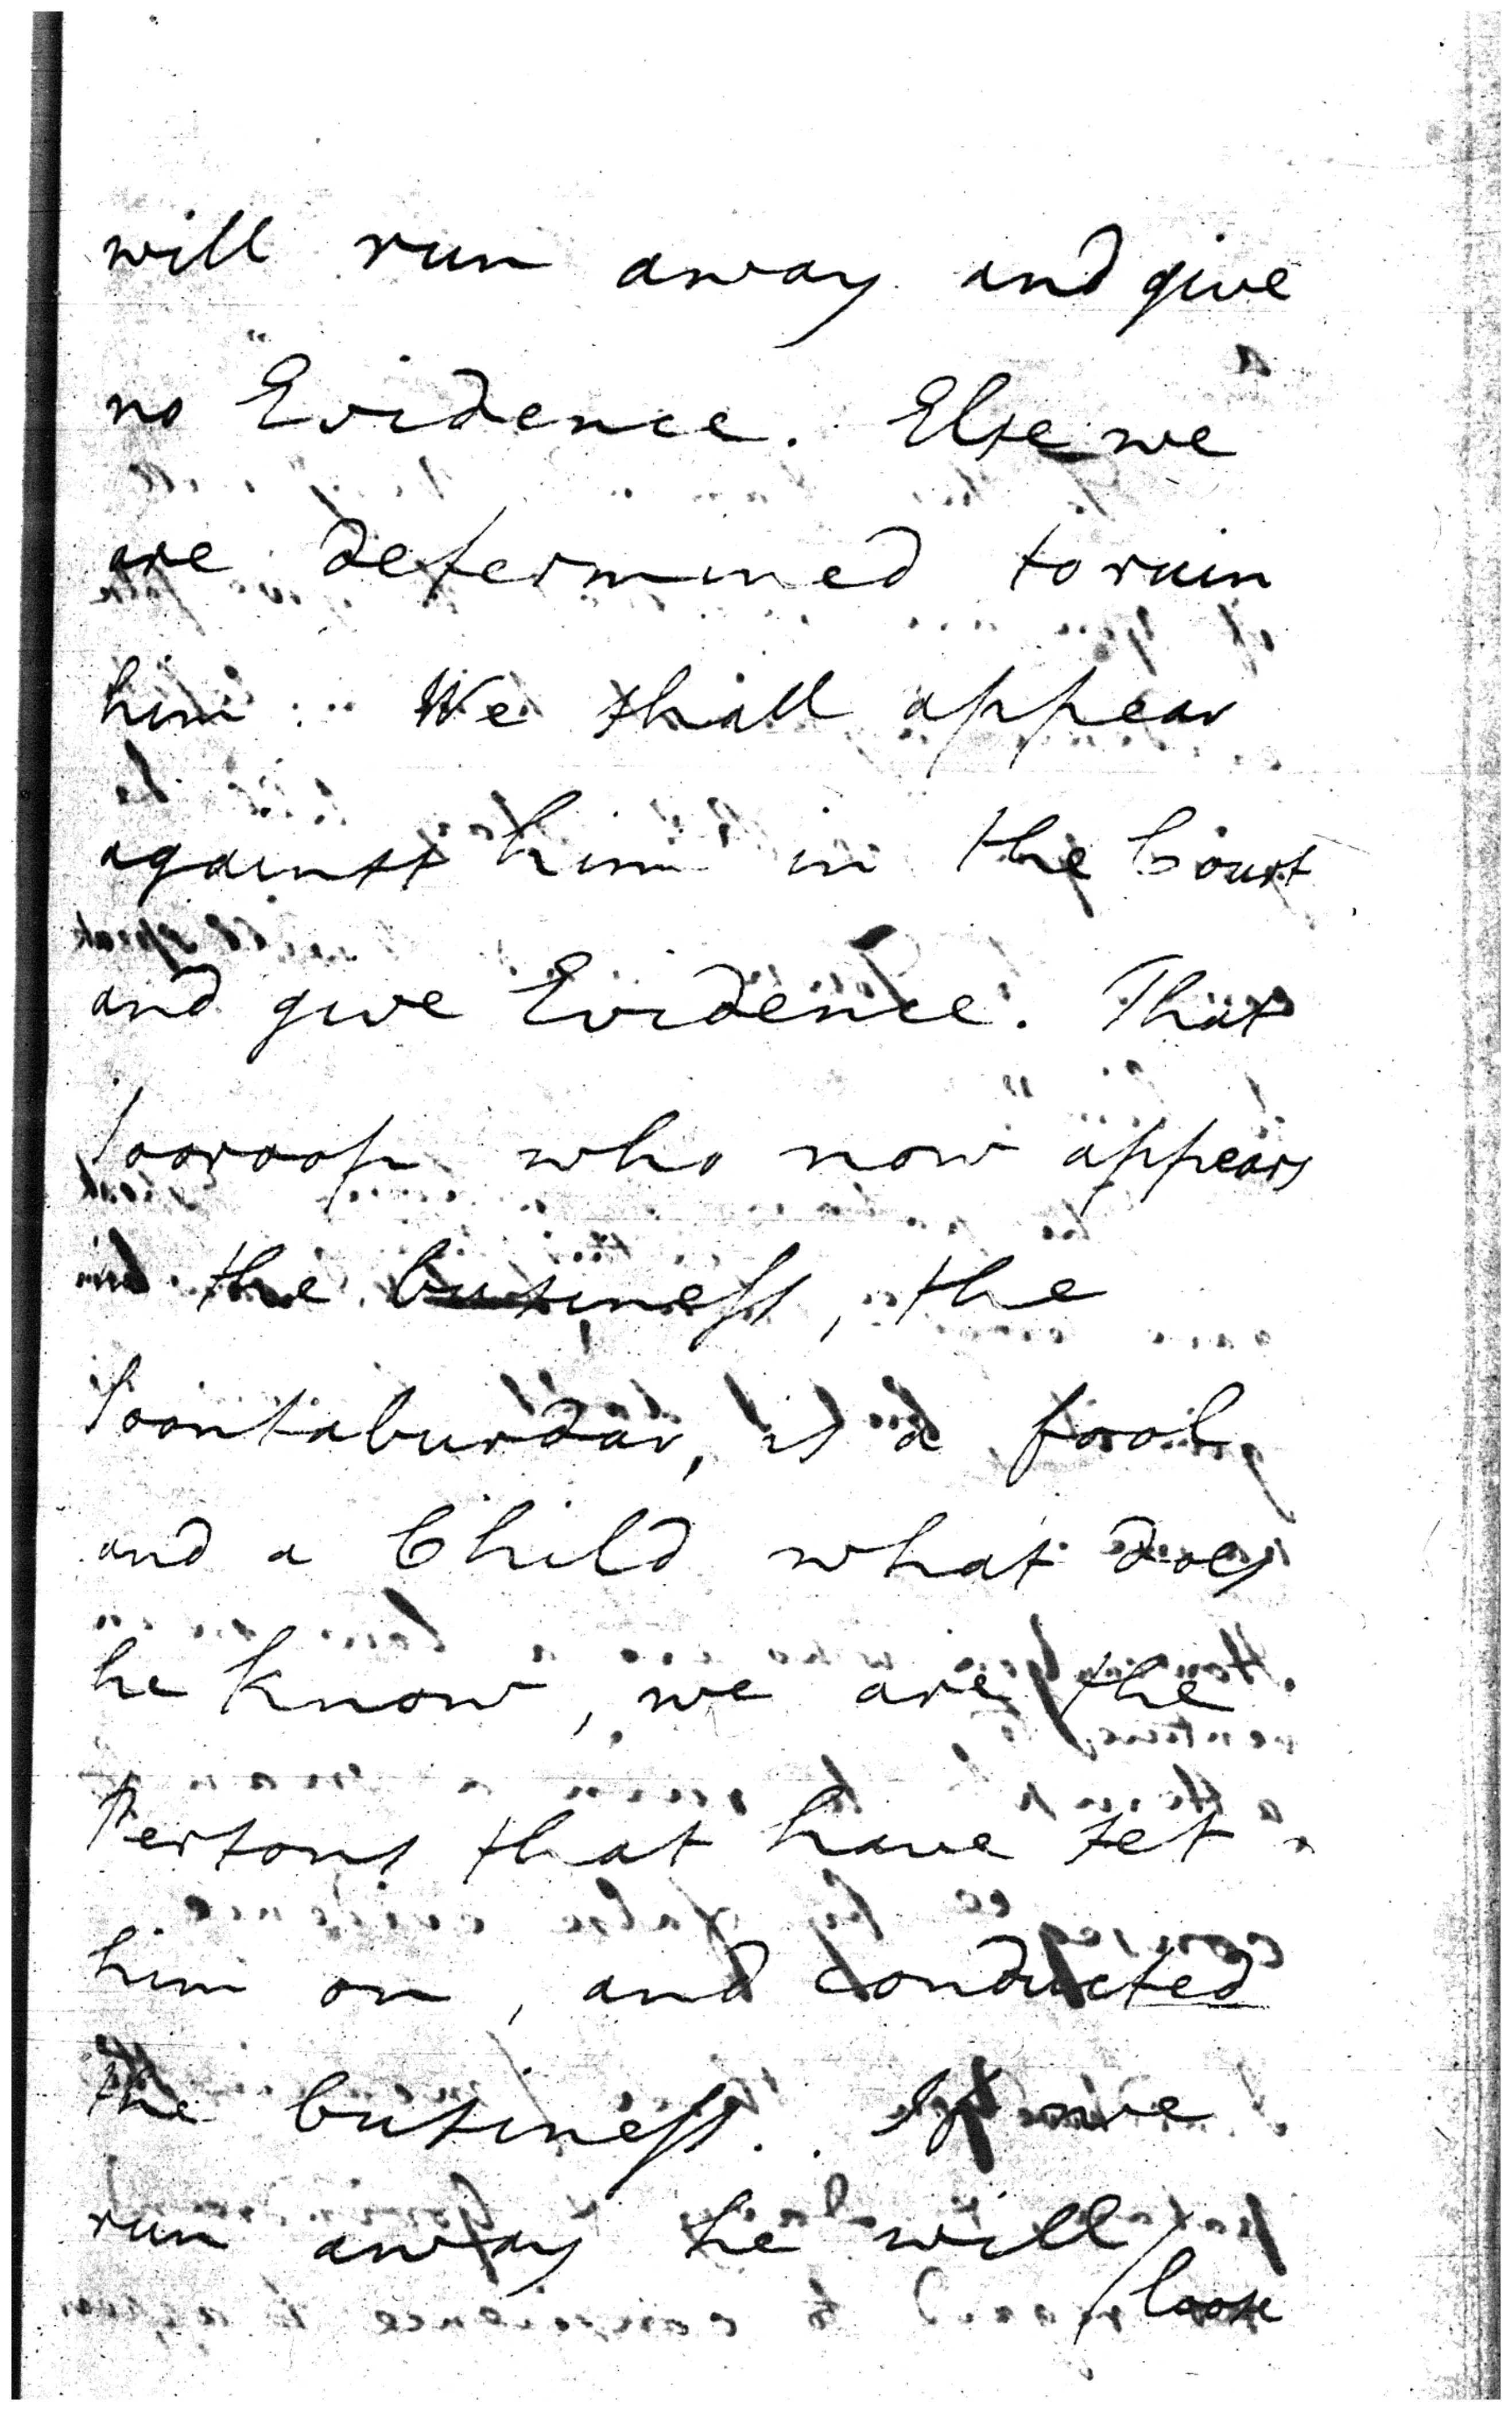 will run away and give
no Evidence. Else we
are determined to ruin
him. We shall appear
against him in the Court
and give Evidence. That
Sooroop who now appears
in the business, the
Soontaburdar, is a fool
and a Child what does
he know, we are the
Persons that have set
him on, and conducted
the business. If we
run away he will
loose